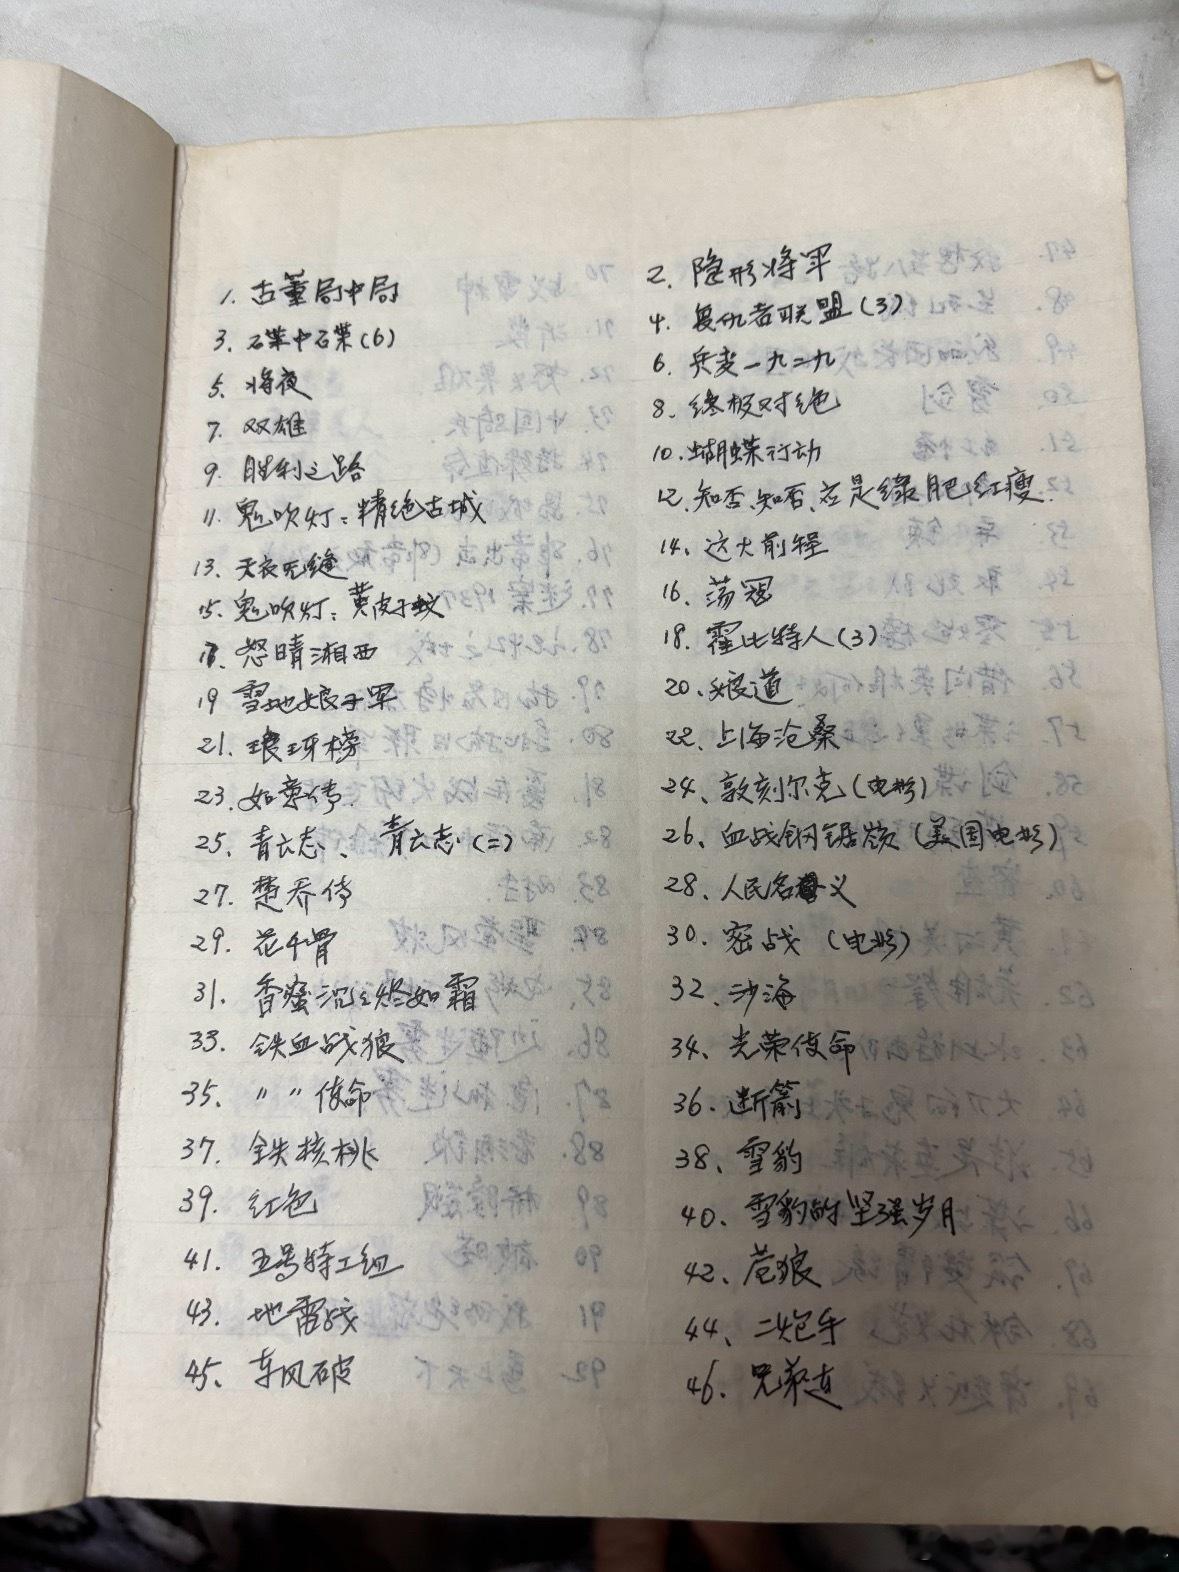 1. 古董局中局
2. 隐形将军
3. 碟中碟(6)
4. 复仇者联盟(3)
5. 将夜
6. 兵变一九二九
7. 双雄
8. 终极对绝
9. 胜利之路
10. 蝴蝶行动
11. 鬼吹灯：精绝古城
12. 知否、知否、应是绿肥红瘦.
13. 天衣无缝
14. 这大前程
15. 鬼吹灯：黄皮子蚊
16. 荡寇
17. 怒晴湘西
18. 霍比特人(3)
19 雪地娘子军
20. 娘道
21. 琅琊榜
22. 上海沧桑
23. 如意传
24. 敦刻尔克(电影)
25. 青云志、青云志(二)
26. 血战钢锯岭(美国电影)
27. 楚乔传
28. 人民名义
29. 花千骨
30. 密战(电影)
31. 香蜜沉沉烬如霜
32. 沙海
33. 铁血战狼
34. 光荣使命
35. 〃 〃 使命
36. 断箭
37. 铁核桃
38. 雪豹
39. 红色
40. 雪豹的坚强岁月
41. 五号特工组
42. 苍狼
43. 地雷战
44. 二炮手
45. 东风破
46. 兄弟连